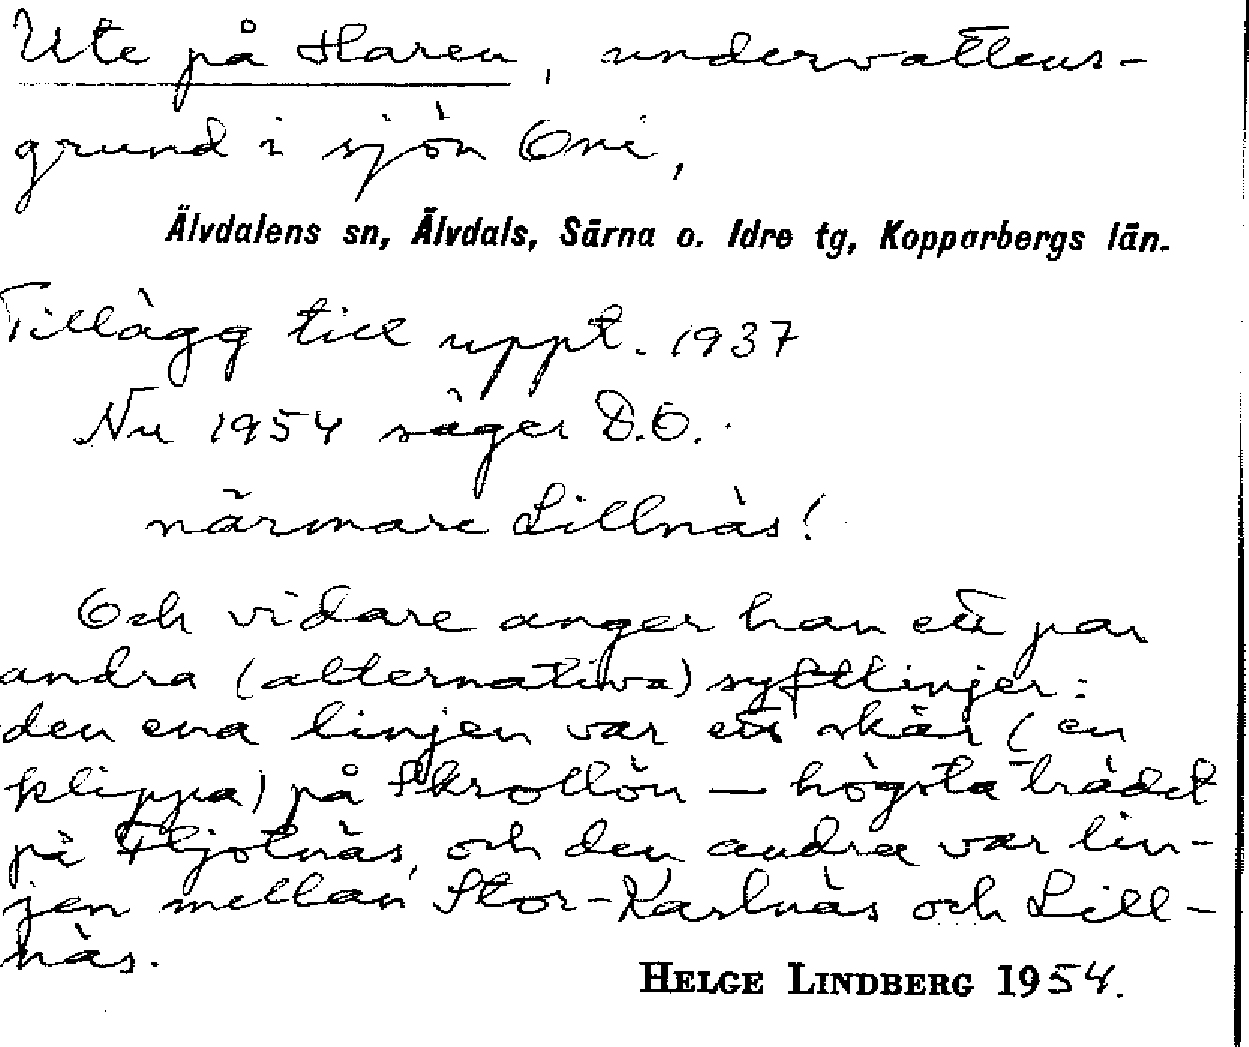 Ute på Haren, undervattens-
grund i sjön Orri,
Älvdalens sn, Älvdals, Särna o. Idre tg, Kopparbergs län.
Tillägg till uppt. 1937
Nu 1954 säger D.O.
närmare Lillnäs!
Och vidare anger han ett par
andra (alternativa) syftlinjer:
den ena linjen var ett skär (en
klippa) på Skrollön – högsta trädet
på Fljotnäs, och den andra var lin-
jen mellan Stor-Karlnäs och Lill-
näs.
HELGE LINDBERG 1954.